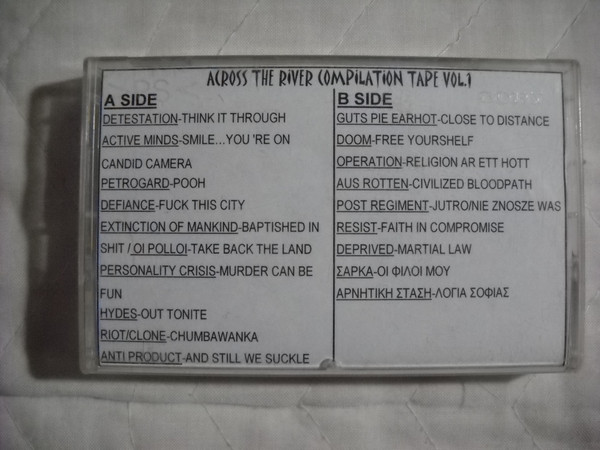 ACROSS THE RIVER COMPILATION TAPE VOL.1
A SIDE
DETESTATION-THINK IT THROUGH
ACTIVE MINDS-SMILE...YOU 'RE ON
CANDID CAMERA
PETROGARD-POOH
DEFIANCE-FUCK THIS CITY
EXTINCTION OF MANKIND-BAPTISHED IN
SHIT / OI POLLOI-TAKE BACK THE LAND
PERSONALITY CRISIS-MURDER CAN BE
FUN
HYDES-OUT TONITE
RIOT/CLONE-CHUMBAWANKA
ANTI PRODUCT-AND STILL WE SUCKLE
B SIDE
GUTS PIE EARHOT-CLOSE TO DISTANCE
DOOM-FREE YOURSHELF
OPERATION-RELIGION AR ETT HOTT
AUS ROTTEN-CIVILIZED BLOODPATH
POST REGIMENT-JUTRO/NIE ZNOSZE WAS
RESIST-FAITH IN COMPROMISE
DEPRIVED-MARTIAL LAW
ΣΑΡΚΑ-ΟΙ ΦΙΛΟΙ ΜΟΥ
ΑΡΝΗΤΙΚΗ ΣΤΑΣΗ-ΛΟΓΙΑ ΣΟΦΙΑΣ